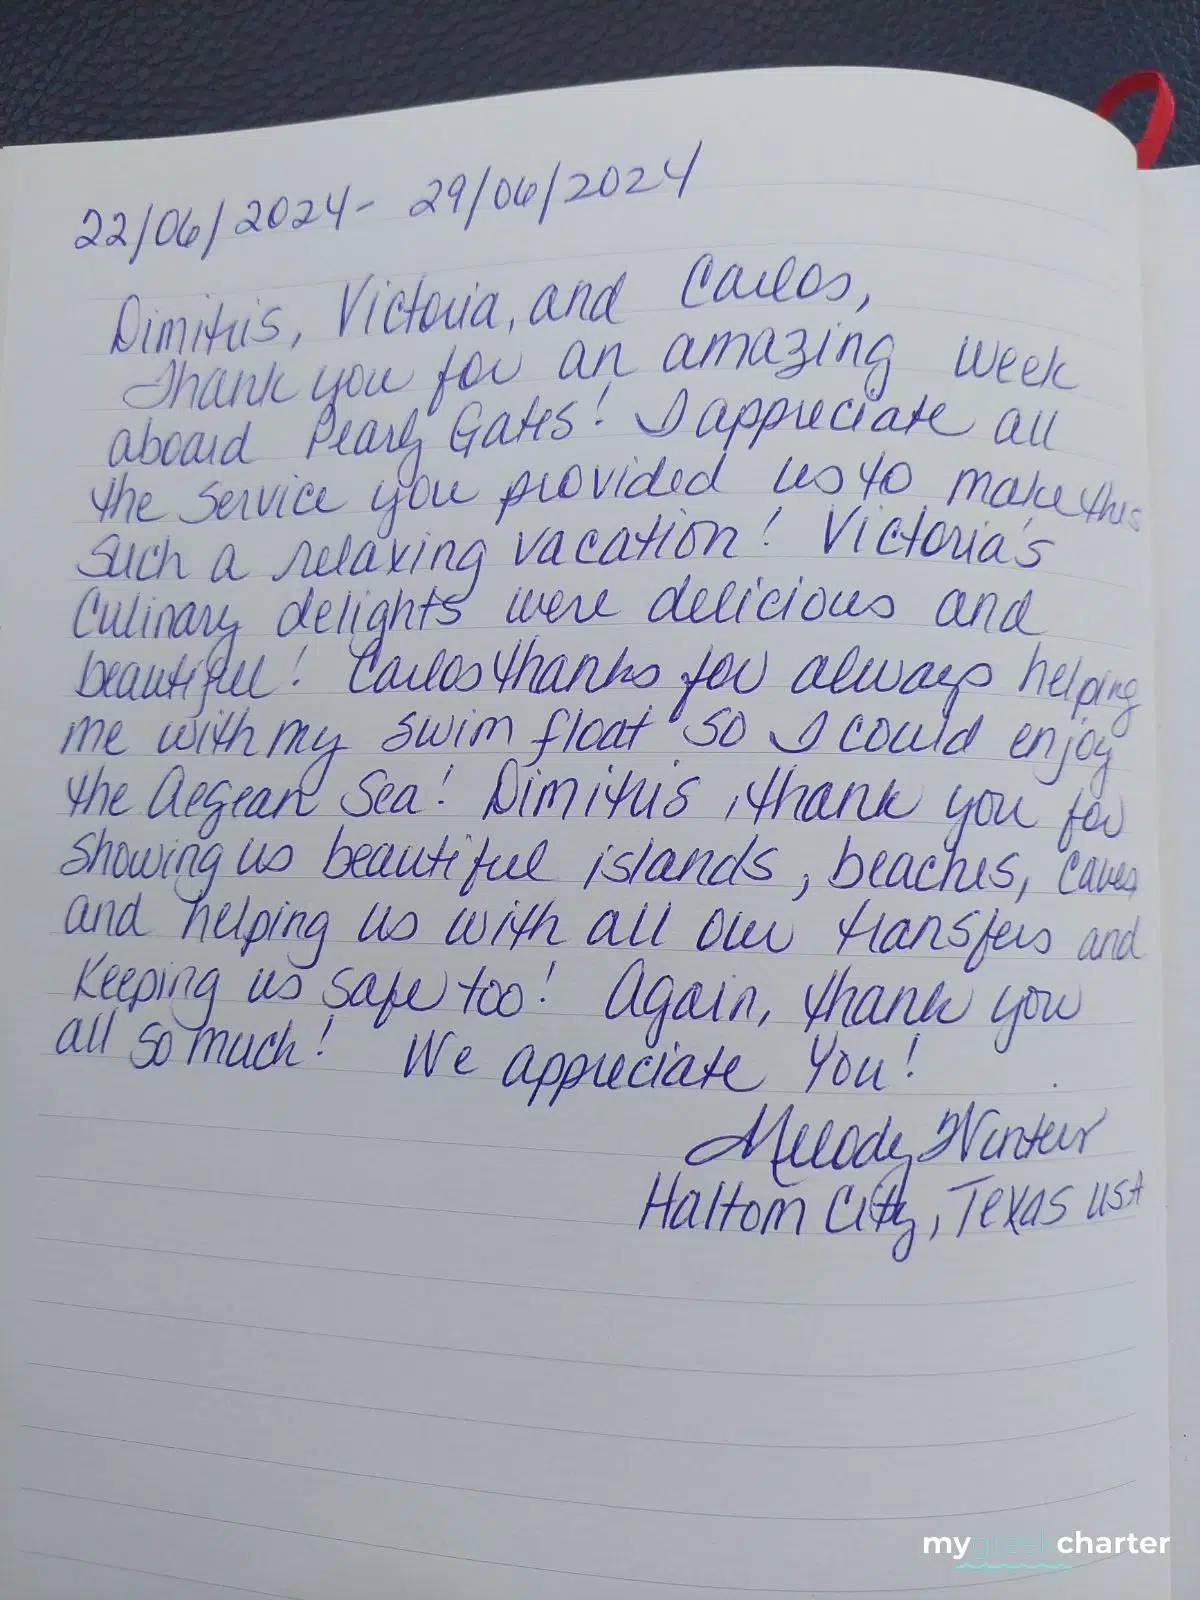 22/06/2024 - 29/06/2024
Dimitris, Victoria, and Carlos,
Thank you for an amazing week
aboard Pearly Gates! I appreciate all
the service you provided us to make this
such a relaxing vacation! Victoria's
culinary delights were delicious and
beautiful! Carlos thanks for always helping
me with my swim float so I could enjoy
the Aegean Sea! Dimitris, thank you for
showing us beautiful islands, beaches, caves
and helping us with all our transfers and
keeping us safe too! Again, thank you
all so much! We appreciate You!
Melody Winter
Haltom City, Texas USA
mygreekcharter